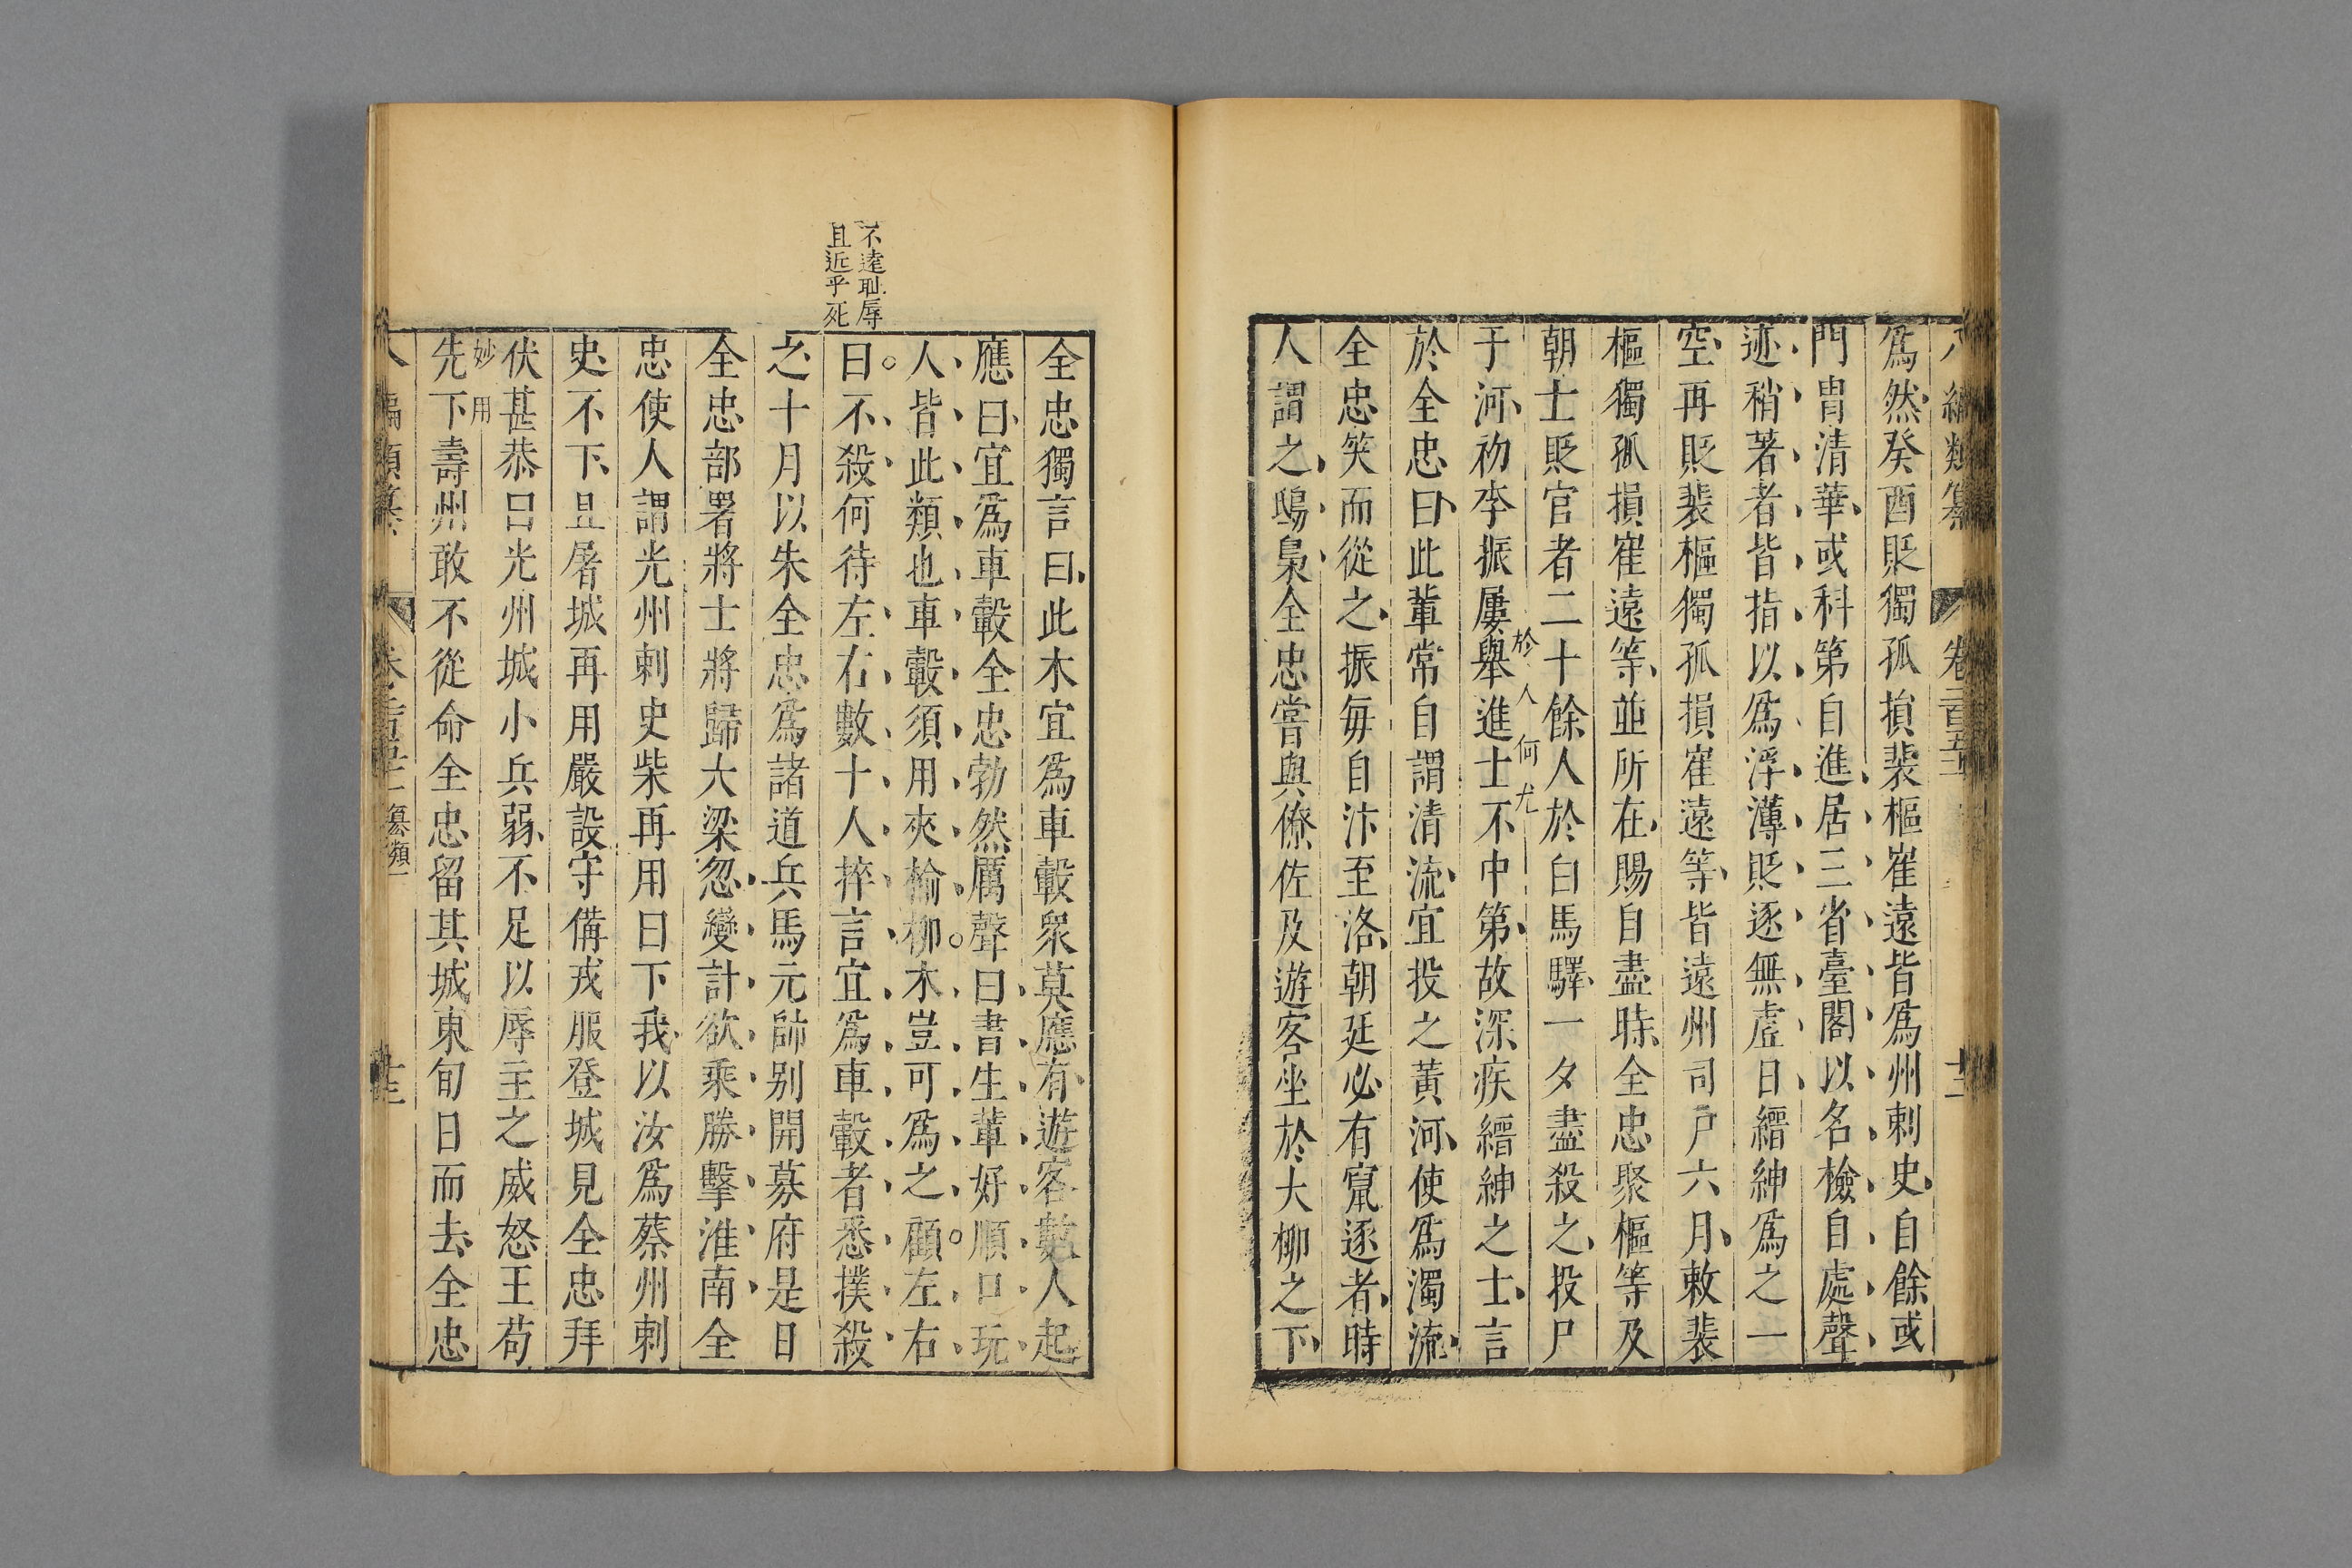 爲然癸酉貶獨孤損裴樞崔遠皆爲州刺史自餘或
門胄清華或科第自進居三省臺閣以名檢自處聲
迹稍著者皆指以爲浮薄貶逐無虛日縉紳爲之一
空再貶裴樞獨孤損崔遠等皆遠州司戶六月敕裴
樞獨孤損崔遠等並所在賜自盡時全忠聚樞等及
朝士貶官者二十餘人於白馬驛一夕盡殺之投尸
於人何尤
于河初李振屢舉進士不中第故深疾縉紳之士言
於全忠曰此輩常自謂清流宜投之黃河使爲濁流
全忠笑而從之振每自汴至洛朝廷必有竄逐者時
人謂之鴟梟全忠嘗與僚佐及遊客坐於大柳之下
全忠獨言曰此木宜爲車轂衆莫應有遊客數人起
應曰宜爲車轂全忠勃然厲聲曰書生輩好順口玩
人皆此類也車轂須用夾榆柳木豈可爲之顧左右
不遠耻辱
且近乎死
曰不殺何待左右數十人捽言宜爲車轂者悉撲殺
之十月以朱全忠爲諸道兵馬元帥別開幕府是日
全忠部署將士將歸大梁忽變計欲乘勝擊淮南全
忠使人謂光州刺史柴再用曰下我以汝爲蔡州刺
史不下且屠城再用嚴設守備戎服登城見全忠拜
伏甚恭曰光州城小兵弱不足以辱王之威怒王苟
妙用
先下壽州敢不從命全忠留其城東旬日而去全忠